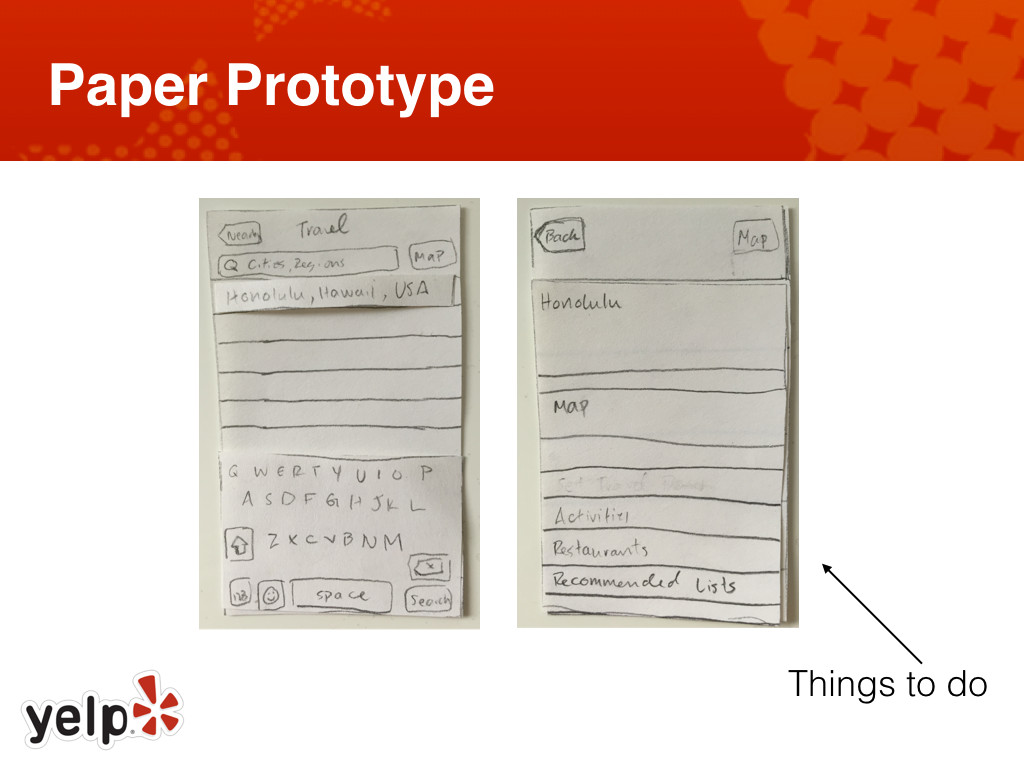 Paper Prototype
Nearby
Travel
Cities, Regions
Map
Honolulu, Hawaii, USA
Q W E R T Y U I O P
A S D F G H J K L
Z X C V B N M
123
space
Search
Back
Map
Honolulu
Map
Set Travel Dates
Activities
Restaurants
Recommended Lists
Things to do
yelp